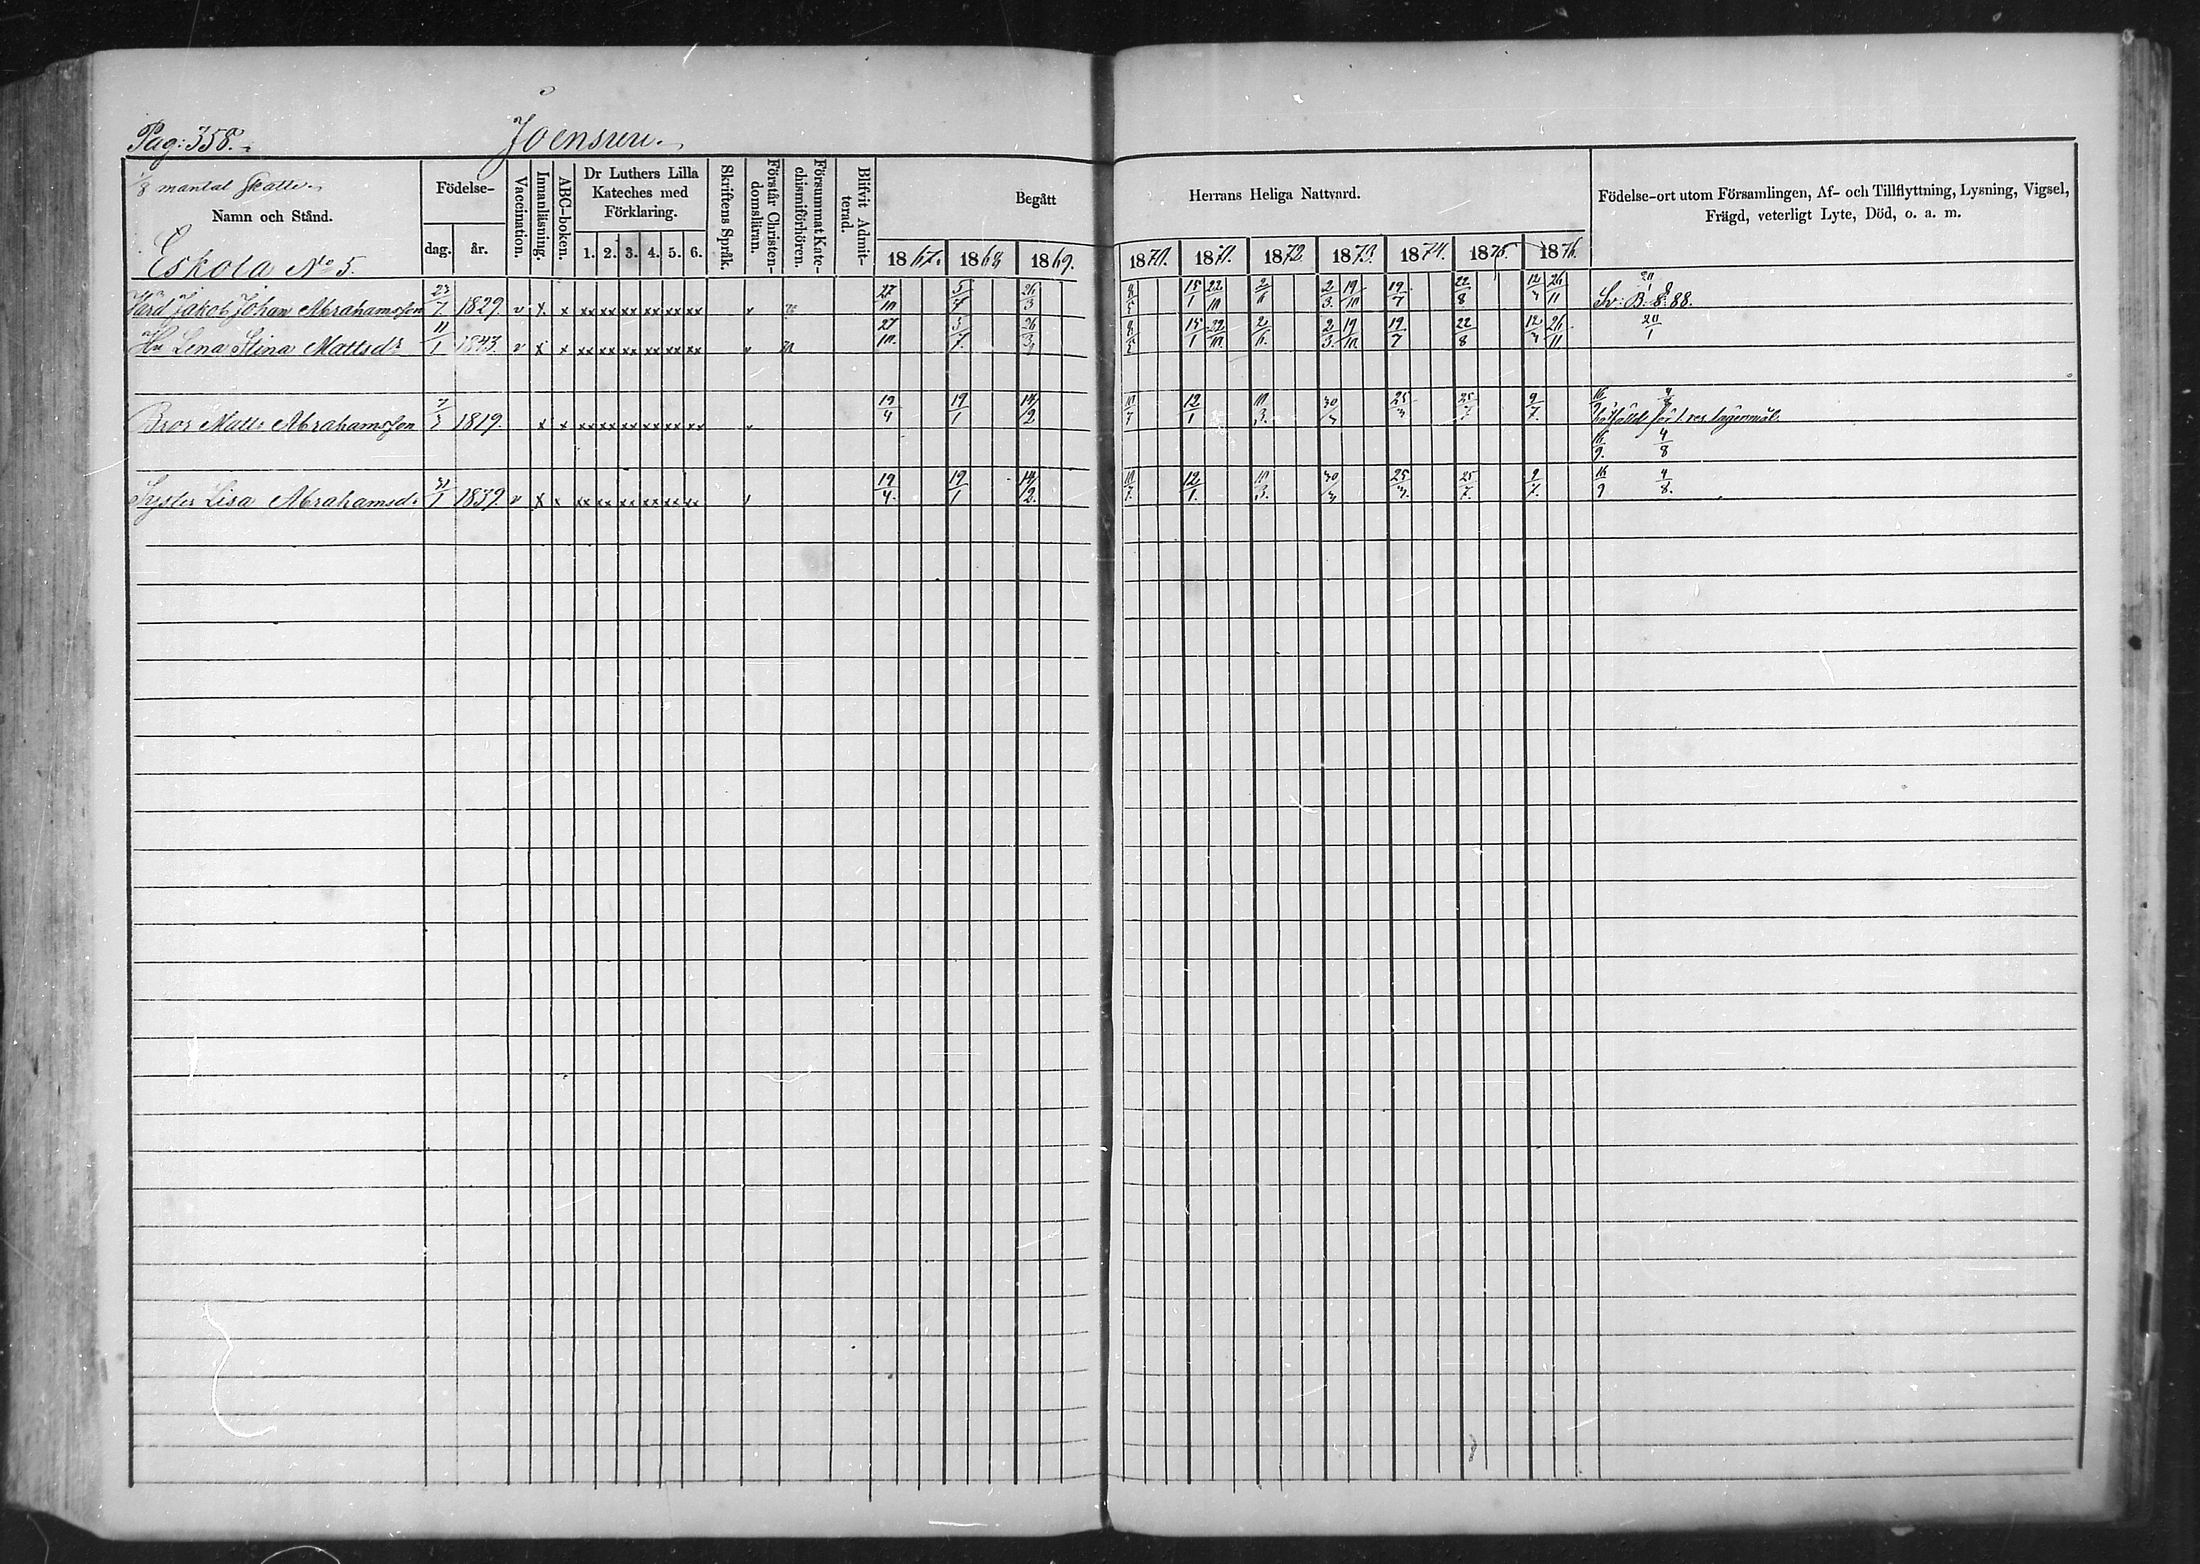 Pag: 358.
Joensuu.
1/8 mantal Skatte.
Namn och Stånd.
Födelse-
dag. år.
Vaccination.
Innanläsning.
ABC-boken.
Dr Luthers Lilla
Kateches med
Förklaring.
1. 2. 3. 4. 5. 6.
Skriftens Språk.
Förstår Christen-
domsläran.
Försummat Kate-
chismiförhören.
Blifvit Admit-
terad.
Begått Herrans Heliga Nattvard.
1867. 1868 1869. 1870. 1871. 1872 1873. 1874. 1875. 1876.
Födelse-ort utom Församlingen, Af- och Tillflyttning, Lysning, Vigsel,
Frägd, veterligt Lyte, Död, o. a. m.
Eskola No 5.
Jakob Johan Abrahamsson 23/7 1829. v x x xx xx xx xx xx xx v 27/10 5/7 26/3 15/1 22/10 2/6 2/3. 19/10 19/7 22/8 12/3 26/11 20/1
Hu Lena Stina Mattsdr 11/1 1843. v x x xx xx xx xx xx xx v 27/10. 5/7. 26/3 15/1 22/10 2/6. 2/3. 19/10. 19/7 22/8 12/3 26/11 20/1
Bror Matts Abrahamsson 7/3 1819. x x xx xx xx xx xx xx v 19/4 19/1 14/2 10/7 12/1 10/3. 30/3 25/3 25/7. 9/7. 16/9
16/9. 4/8
Syster Lisa Abrahamsd. 31/1 1839. v x x xx xx xx xx xx xx 19/4. 19/1 14/2. 10/7. 12/1. 10/3. 30/3 25/3. 25/7. 9/7. 16/9 4/8.